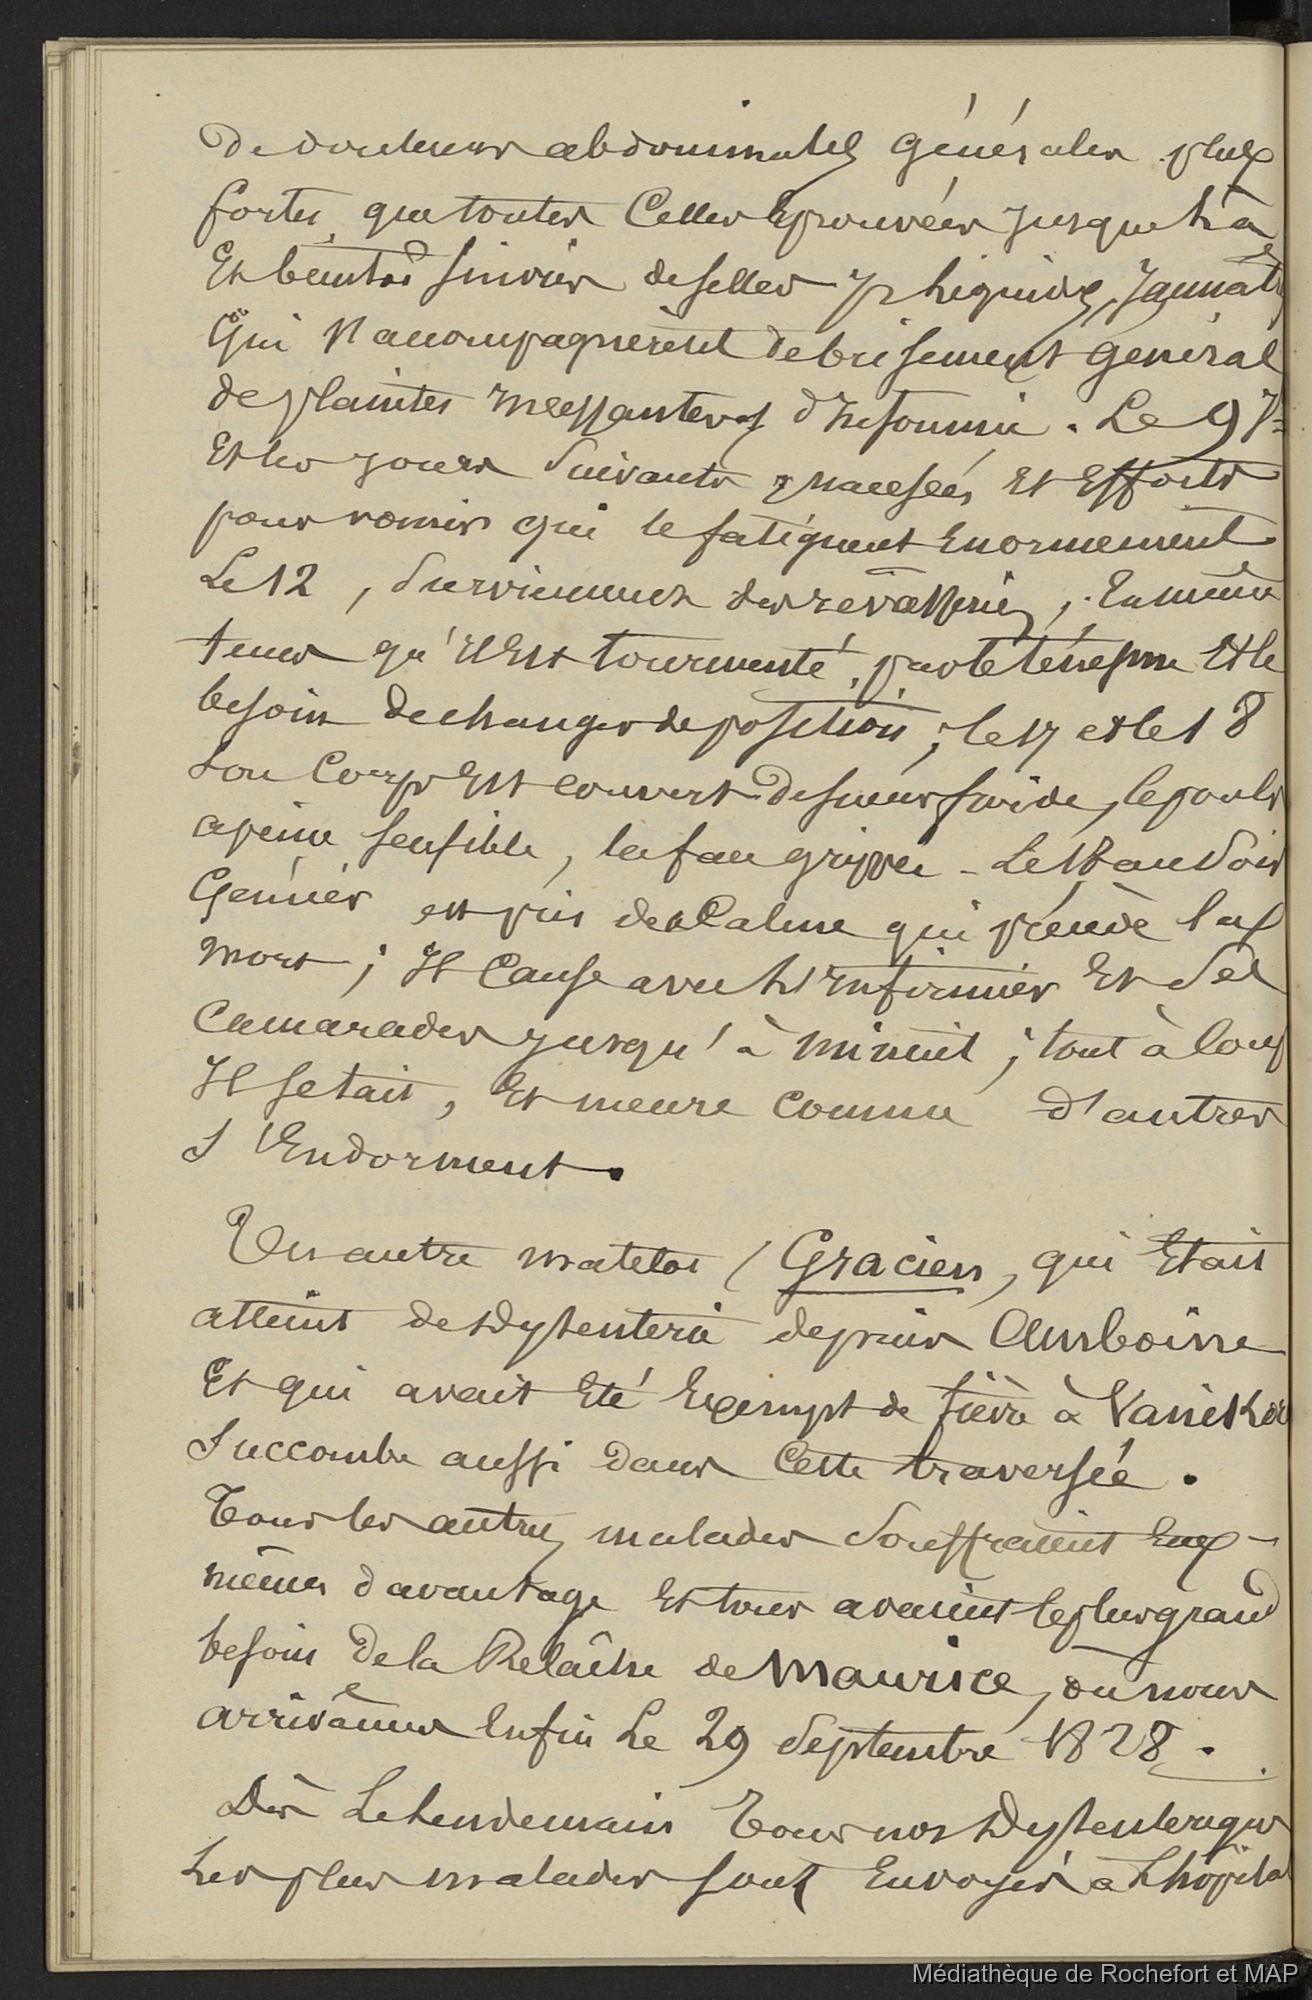 De douleurs abdominales générales plus
fortes que toutes Celles Eprouvées jusque là
Et bientôt suivies de selles liquides,
qui s'accompagnèrent de brisement général
de plaintes incessantes d'Insomnie. Le 9 7
Et les jours suivants nausées Et Efforts
pour vomir qui le fatiguent Enormément
Le 12, Surviennent des revasseries, En même
temps qu'il Est tourmenté par le ténesme Et le
besoin de changer de position; le 17 et le 18
Son Corps Est couvert de sueur froide, le pouls
a peine sensible, la face grippée - Le 18 au Soir
Genner est pris de Calme qui précède la
Mort; Il Cause avec les Infirmiers Et Ses
Camarades jusqu'à minuit; tout à coup
Il se tait, Et meure comme d'autres
S'Endorment.
Un autre matelot (Gracien, qui Etait
atteint de Dysenterie depuis Amboine
Et qui avait Eté Exempt de fièvre à Vanikor
Succombe aussi dans Cette traversée.
Tous les autres malades Souffraient Eux-
mêmes davantage Et tous avaient le plus grand
besoin De la Relâche de Maurice, où nous
arrivâmes Enfin Le 29 Septembre 1828.
Dès Le lendemain Tous nos Dysenteriques
Les plus malades sont Envoyés à L'hôpital
Médiathèque de Rochefort et MAP